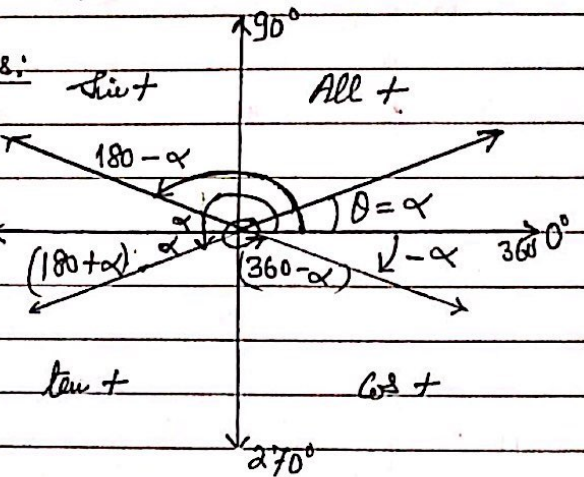 90°
s:
Sin + All +
180-α
θ = α
α
α
(180+α) (360-α) -α 360° 0°
tan + Cos +
270°